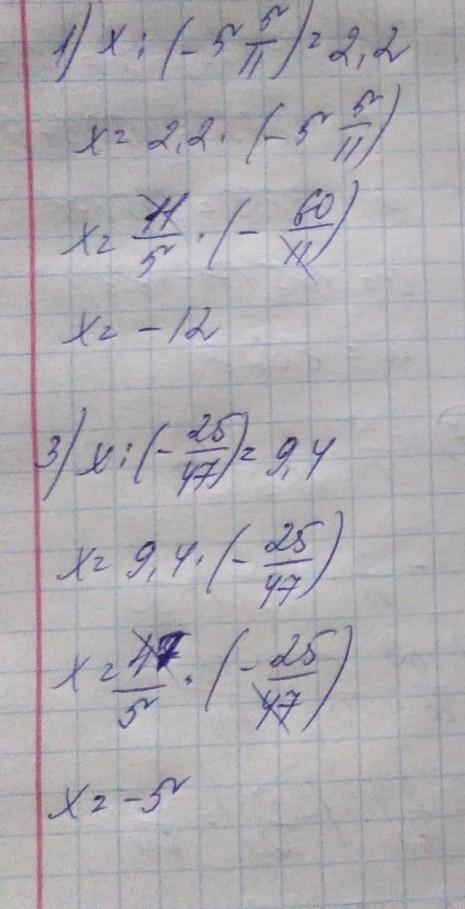 1) x : (-5 5/11) = 2,2
x = 2,2 · (-5 5/11)
x = 11/5 · (- 60/11)
x = -12
3) x : (- 25/47) = 9,4
x = 9,4 · (- 25/47)
x = 47/5 · (- 25/47)
x = -5